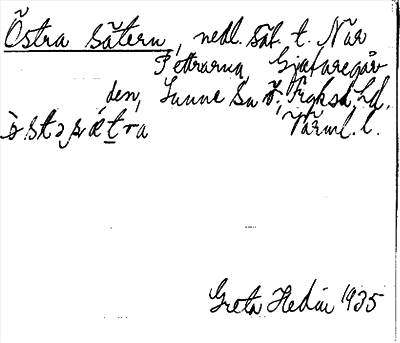 Östra sätern, nedl. säf. t. När
Pettrarna, Gjutaregår
den, Sunne sn Ö, Fryksd. hd.
Värml. l.
Greta Hedin 1935